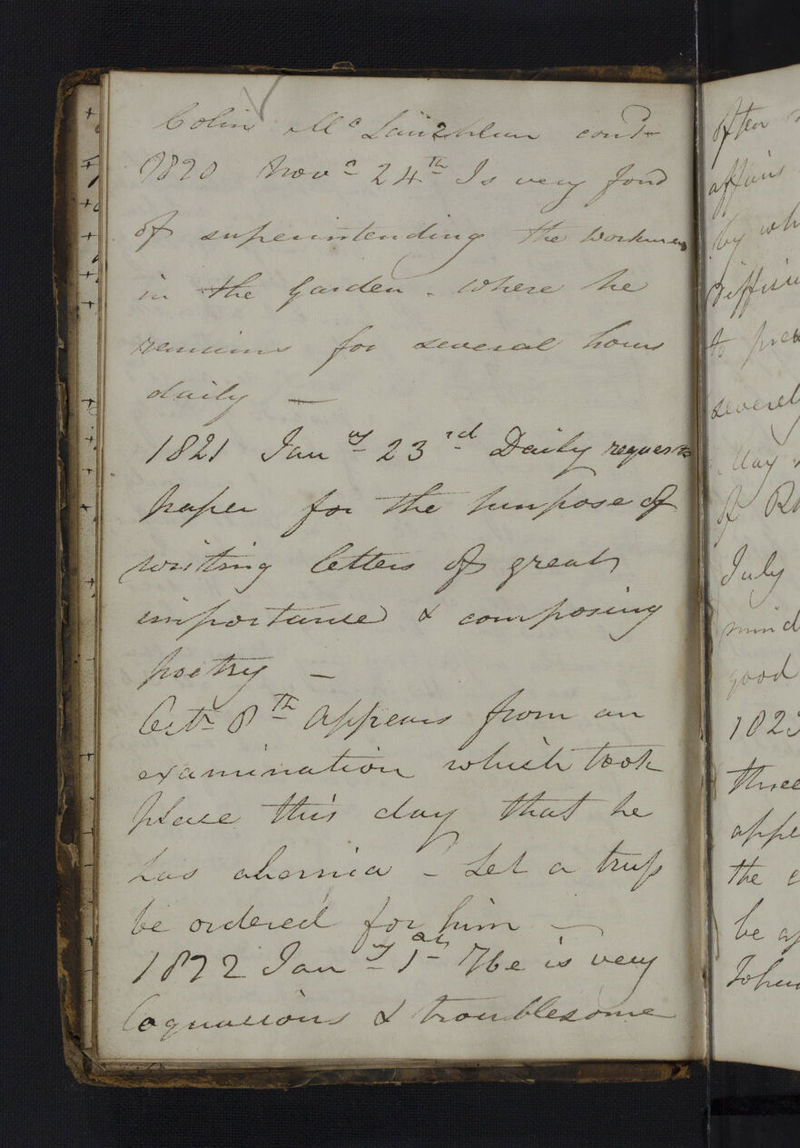 Colin McLauchlan cont
1820 Novr 24th Is very fond
of superintending the workmen
in the Garden - where he
remains for several hours
daily —
1821 Jany 23rd Daily requests
paper for the purpose of
writing letters of great
importance & composing
poetry —
Octr 8th Appears from an
examination which took
place this day that he
has ahernia - Let a truss
be ordered for him —
1822 Jany 1st He is very
loquacious & troublesome
often
affairs
by
to
May
of
July
mind
good
1823
three
the
be